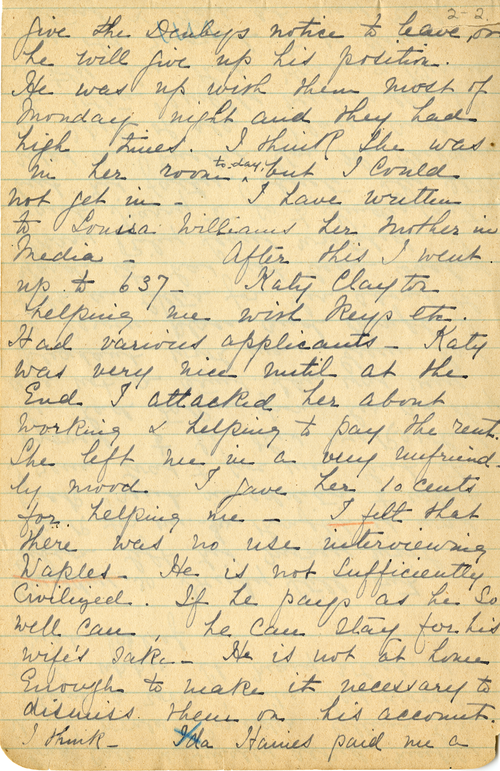 2-2.
give the Denbys notice to leave, or
he will give up his position.
He was up with them most of
Monday night and they had
high times. I think she was
in her room to-day, but I could
not get in - I have written
to Louisa Williams her mother in
Media - After this I went
up to 637 - Katy Clayton
helping me with keys etc.
Had various applicants - Katy
was very nice until at the
End I attacked her about
working & helping to pay the rent.
She left me in a very unfriend
ly mood I gave her 10 cents
for helping me - I felt that
there was no use interviewing
Naples - He is not sufficiently
Civilized. If he pays as he so
well can, he can stay for his
wife's sake - He is not at home
Enough to make it necessary to
dismiss them on his account.
I think - Ida Haines paid me a